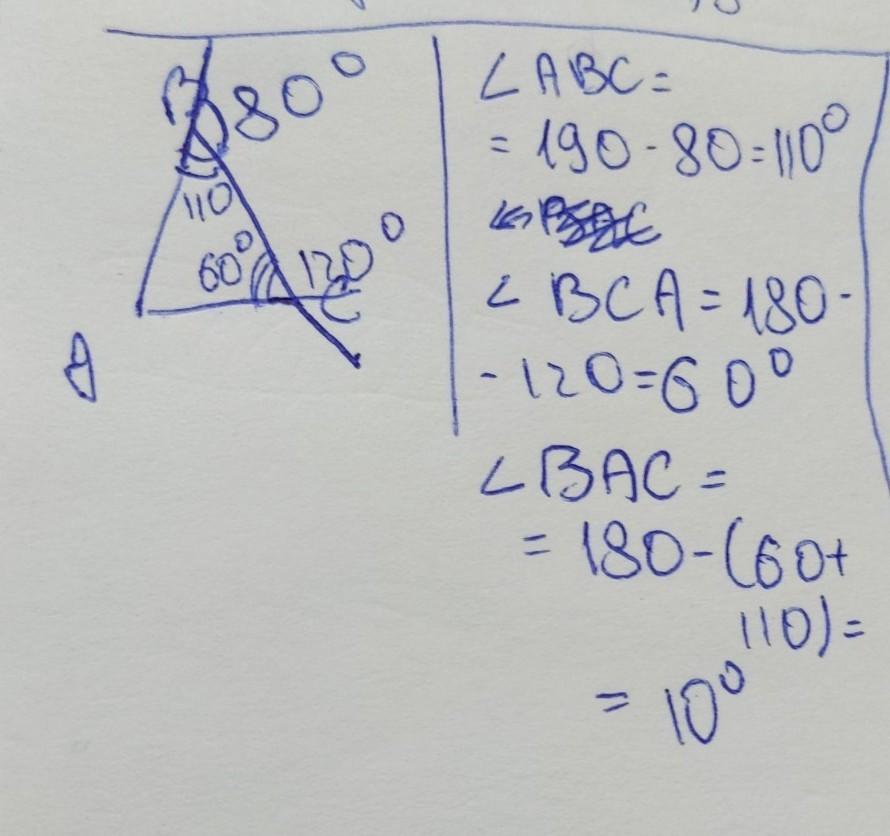 B 80°
110
60° 120°
C
A
∠ABC=
= 190-80=110°
∠ BCA = 180-
-120=60°
∠BAC =
= 180-(60+
110)=
= 10°